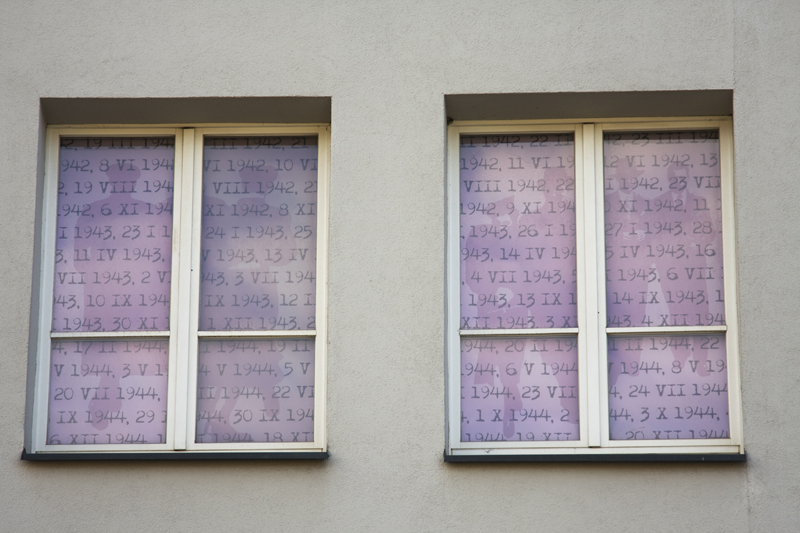 1942, 8 VI 1942
VI 1942, 10 VI
2, 19 VIII 194
VIII 1942, 21
1942, 6 XI 194
1942, 8 XI
I 1943, 23 I 1
24 I 1943, 25
3, 11 IV 1943,
V 1943, 13 IV
VII 1943, 2 V
3, 3 VII 194
43, 10 IX 194
IX 1943, 12 I
1943, 30 XI
1 XII 1943, 2
4, 17 II 1944
1944, 19 II
V 1944, 3 V 1
4 V 1944, 5 V
20 VII 1944,
1944, 22 VI
IX 1944, 29
44, 30 IX 194
6 XII 1944
1944, 18 XI
II 1942, 22 II
2, 23 III 19
1942, 11 VI 19
2 VI 1942, 13
VIII 1942, 22
1942, 23 VII
1942, 9 XI 194
XI 1942, 11
1943, 26 I 19
27 I 1943, 28
1943, 14 IV 194
5 IV 1943, 16
4 VII 1943, 5
I 1943, 6 VII
1943, 13 IX 1
14 IX 1943, 1
XII 1943, 3 X
43, 4 XII 194
944, 20 II 194
II 1944, 22
1944, 6 V 194
V 1944, 8 V 19
1944, 23 VII
44, 24 VII 194
, 1 X 1944, 2
44, 3 X 1944,
1944, 19 XII
20 XII 1944